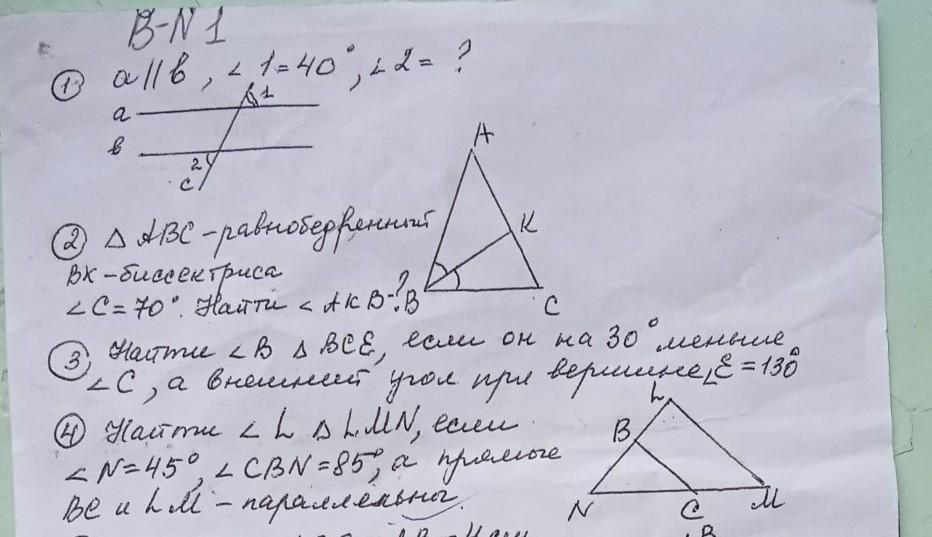 В-N 1
① a || b, ∠1=40°, ∠2= ?
a
1
b
2
c
A
② △ ABC - равнобедренный
K
BK - биссектриса
∠C=70°. Найти ∠AKB-?
B
C
③ Найти ∠B △ BCE, если он на 30° меньше
∠C, а внешний угол при вершине ∠E=130°
L
④ Найти ∠L △ LMN, если
B
∠N=45°, ∠CBN=85°, а прямые
BC и LM - параллельны.
N
C
M
B